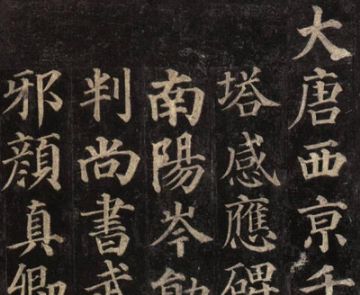 大唐西京千
塔感應碑
南陽岑勛
判尚書武
邪顏真卿